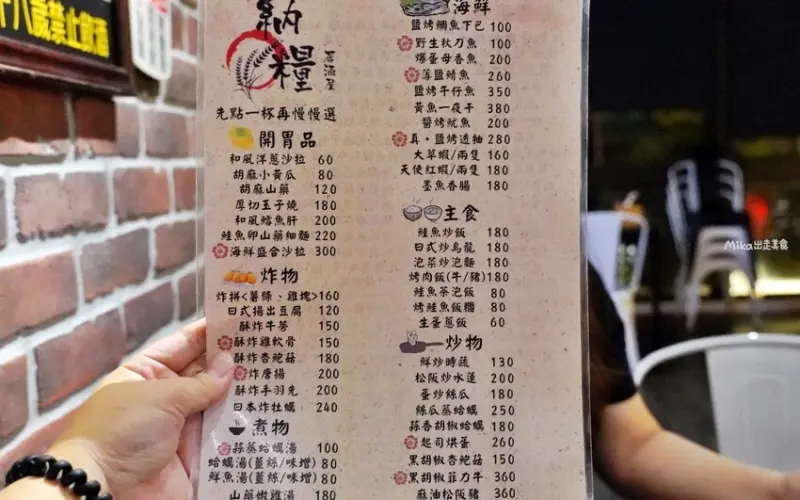 十八歲禁止飲酒
納糧
居酒屋
先點一杯再慢慢選
開胃品
和風洋蔥沙拉 60
胡麻小黃瓜 80
胡麻山藥 120
厚切玉子燒 180
和風鱈魚肝 200
鮭魚卵山藥細麵 220
海鮮盛合沙拉 300
炸物
炸拼<薯條、雞塊>160
日式揚出豆腐 120
酥炸牛蒡 150
酥炸雞軟骨 150
酥炸杏鮑菇 180
炸唐揚 200
酥炸手羽先 200
日本炸牡蠣 240
煮物
蒜蒸蛤蠣湯 100
蛤蠣湯(薑絲/味增) 80
鮮魚湯(薑絲/味增) 80
山藥嫩雞湯 180
海鮮
鹽烤鯛魚下巴 100
野生秋刀魚 100
爆蛋母香魚 200
薄鹽鯖魚 260
鹽烤午仔魚 350
黃魚一夜干 380
醬烤魷魚 200
真·鹽烤透抽 280
大草蝦/兩隻 160
天使紅蝦/兩隻 180
墨魚香腸 180
主食
鮭魚炒飯 180
日式炒烏龍 180
泡菜炒泡麵 180
烤肉飯(牛/豬)180
鮭魚茶泡飯 80
烤鮭魚飯糰 80
生蛋蔥飯 60
炒物
鮮炒時蔬 130
松阪炒水蓮 200
蛋炒絲瓜 180
絲瓜蒸蛤蠣 250
蒜香胡椒蛤蠣 180
起司烘蛋 260
黑胡椒杏鮑菇 150
黑胡椒菲力牛 360
麻油松阪豬 360
Mika出走美食